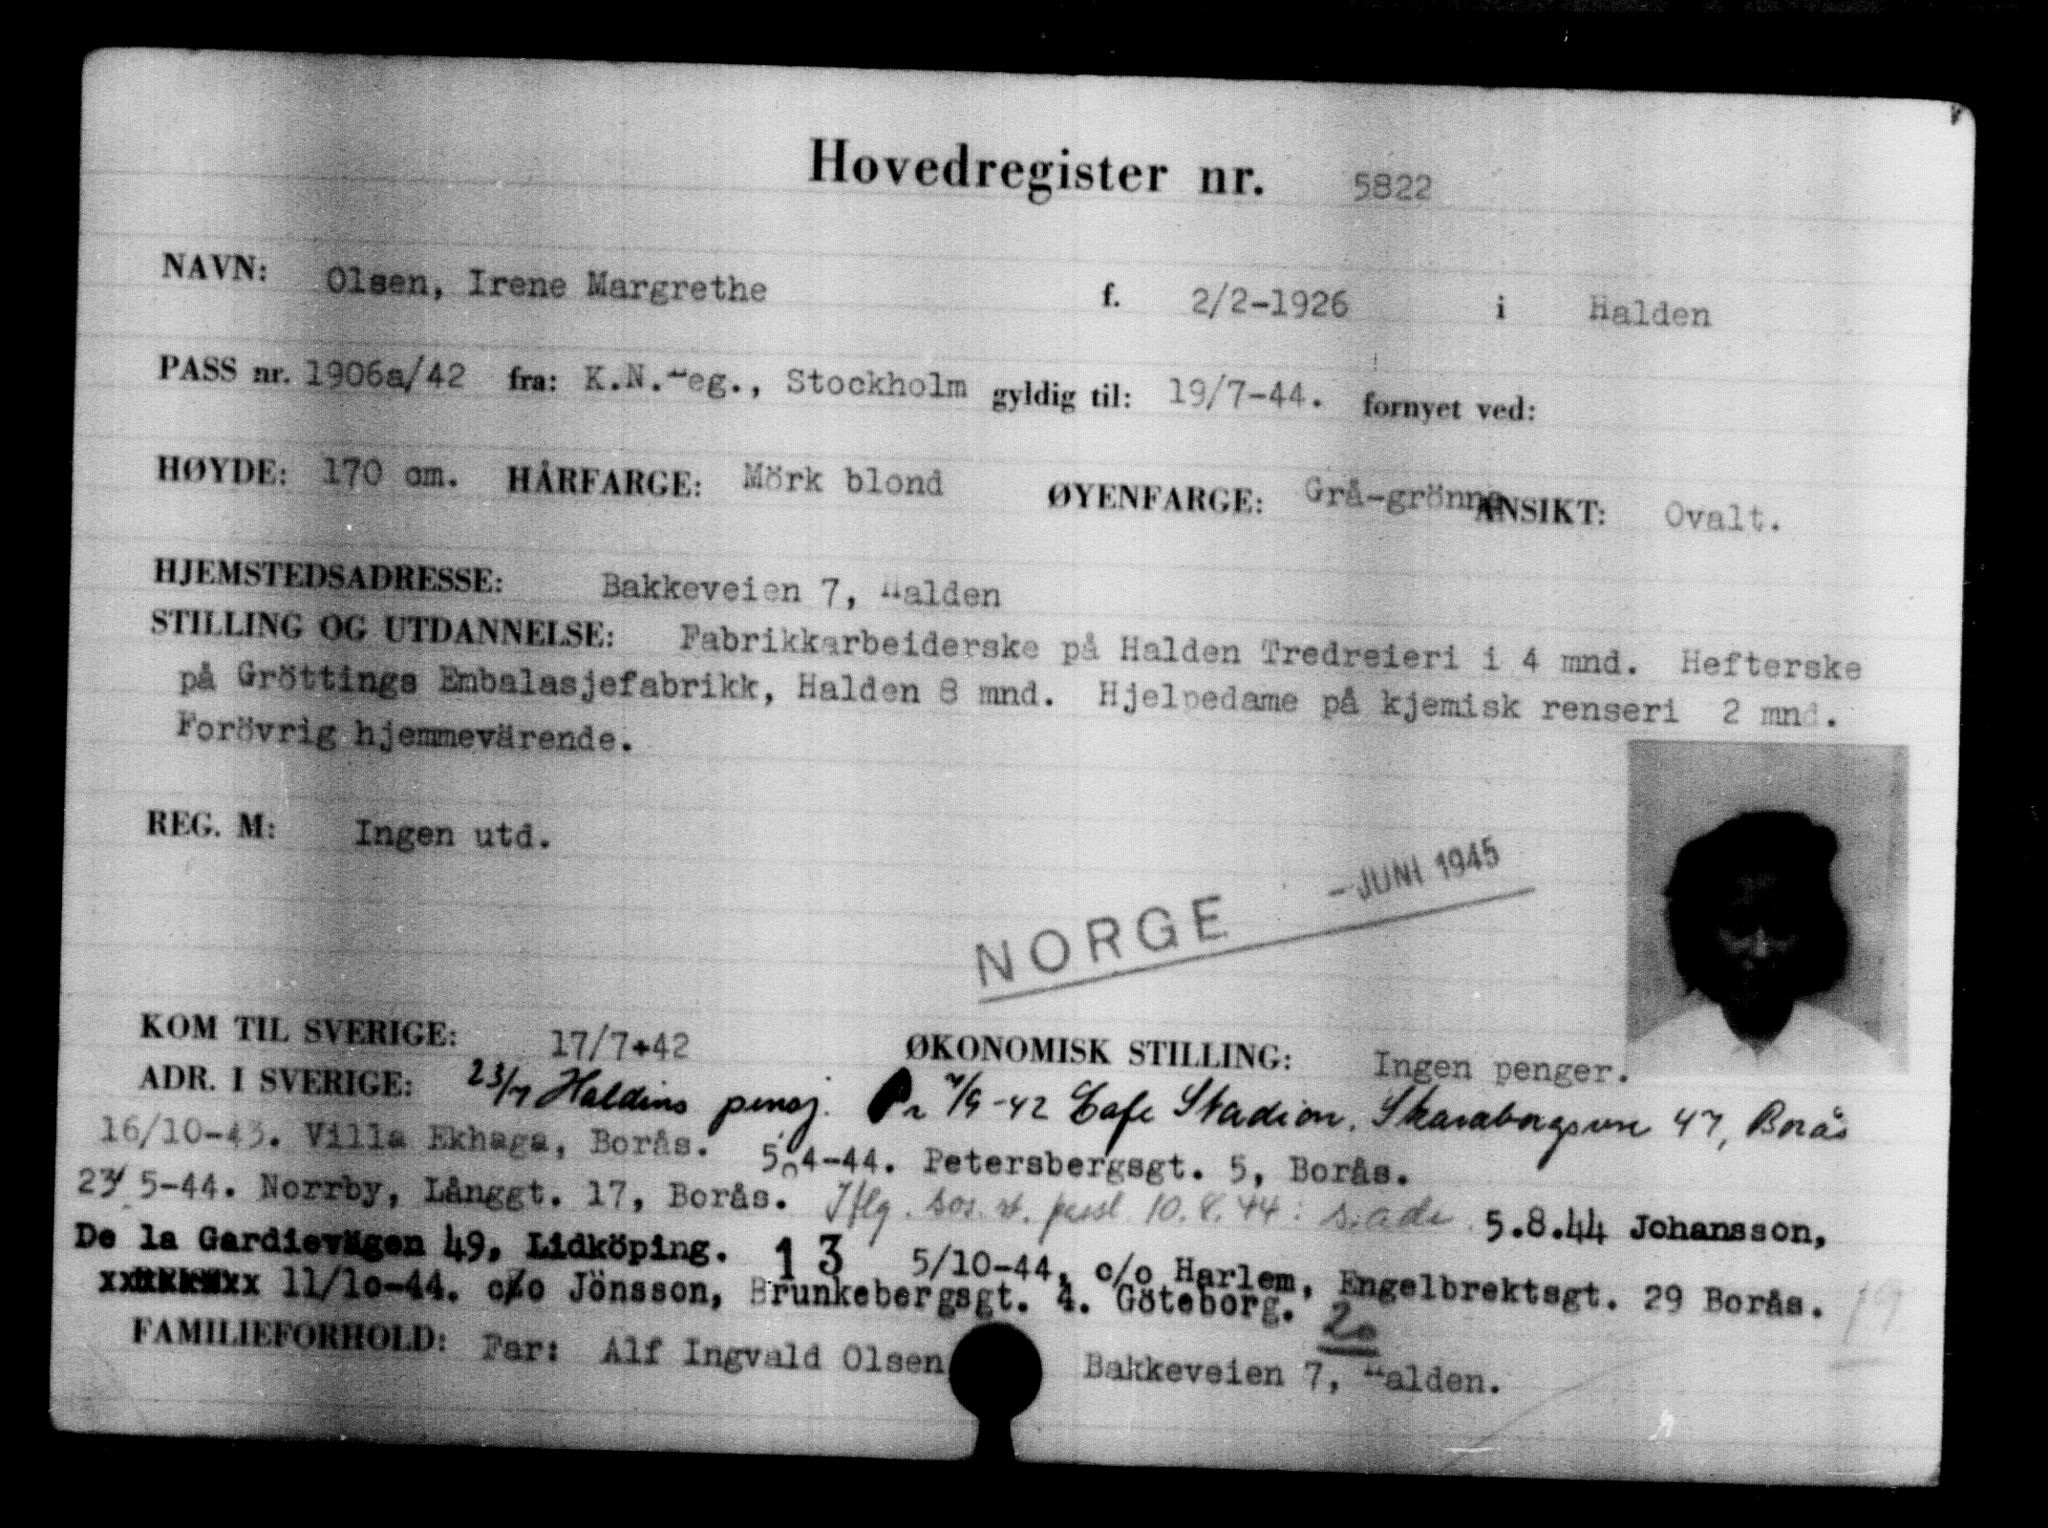 Hovedregister nr. 5822
NAVN: Olsen, Irene Margrethe f. 2/2-1926 i Halden
PASS nr. 1906a/42 fra: K.N.Leg., Stockholm gyldig til: 19/7-44. fornyet ved:
HØYDE: 170 cm. HÅRFARGE: Mörk blond ØYENFARGE: Grå-grönne ANSIKT: Ovalt.
HJEMSTEDSADRESSE: Bakkeveien 7, Halden
STILLING OG UTDANNELSE: Fabrikkarbeiderske på Halden Tredreieri i 4 mnd. Hefterske
på Gröttings Embalasjefabrikk, Halden 8 mnd. Hjelpedame på kjemisk renseri 2 mnd.
Forövrig hjemmevärende.
REG. M: Ingen utd.
NORGE - JUNI 1945
KOM TIL SVERIGE: 17/7-42 ØKONOMISK STILLING: Ingen penger.
ADR. I SVERIGE: 23/7 Haldins pensj. Pr 7/9-42 Cafe Stadion, 47, Borås
16/10-43. Villa Ekhaga, Borås. 5.4-44. Petersbergsgt. 5, Borås.
23/5-44. Norrby, Långgt. 17, Borås. Iflg. sos. 10.8.44: 5.8.44 Johansson,
De la Gardievägen 49, Lidköping. 13 5/10-44, c/o Harlem, Engelbrektsgt. 29 Borås. 19
11/10-44. c/o Jönsson, Brunkebergsgt. 4. Göteborg. 20
FAMILIEFORHOLD: Far: Alf Ingvald Olsen Bakkeveien 7, Halden.